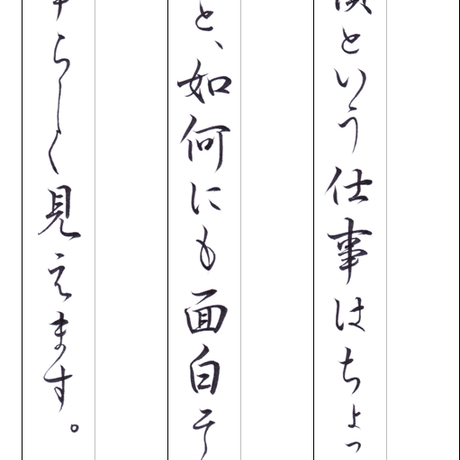 という仕事はちょっ
と、如何にも面白そ
らしく見えます。